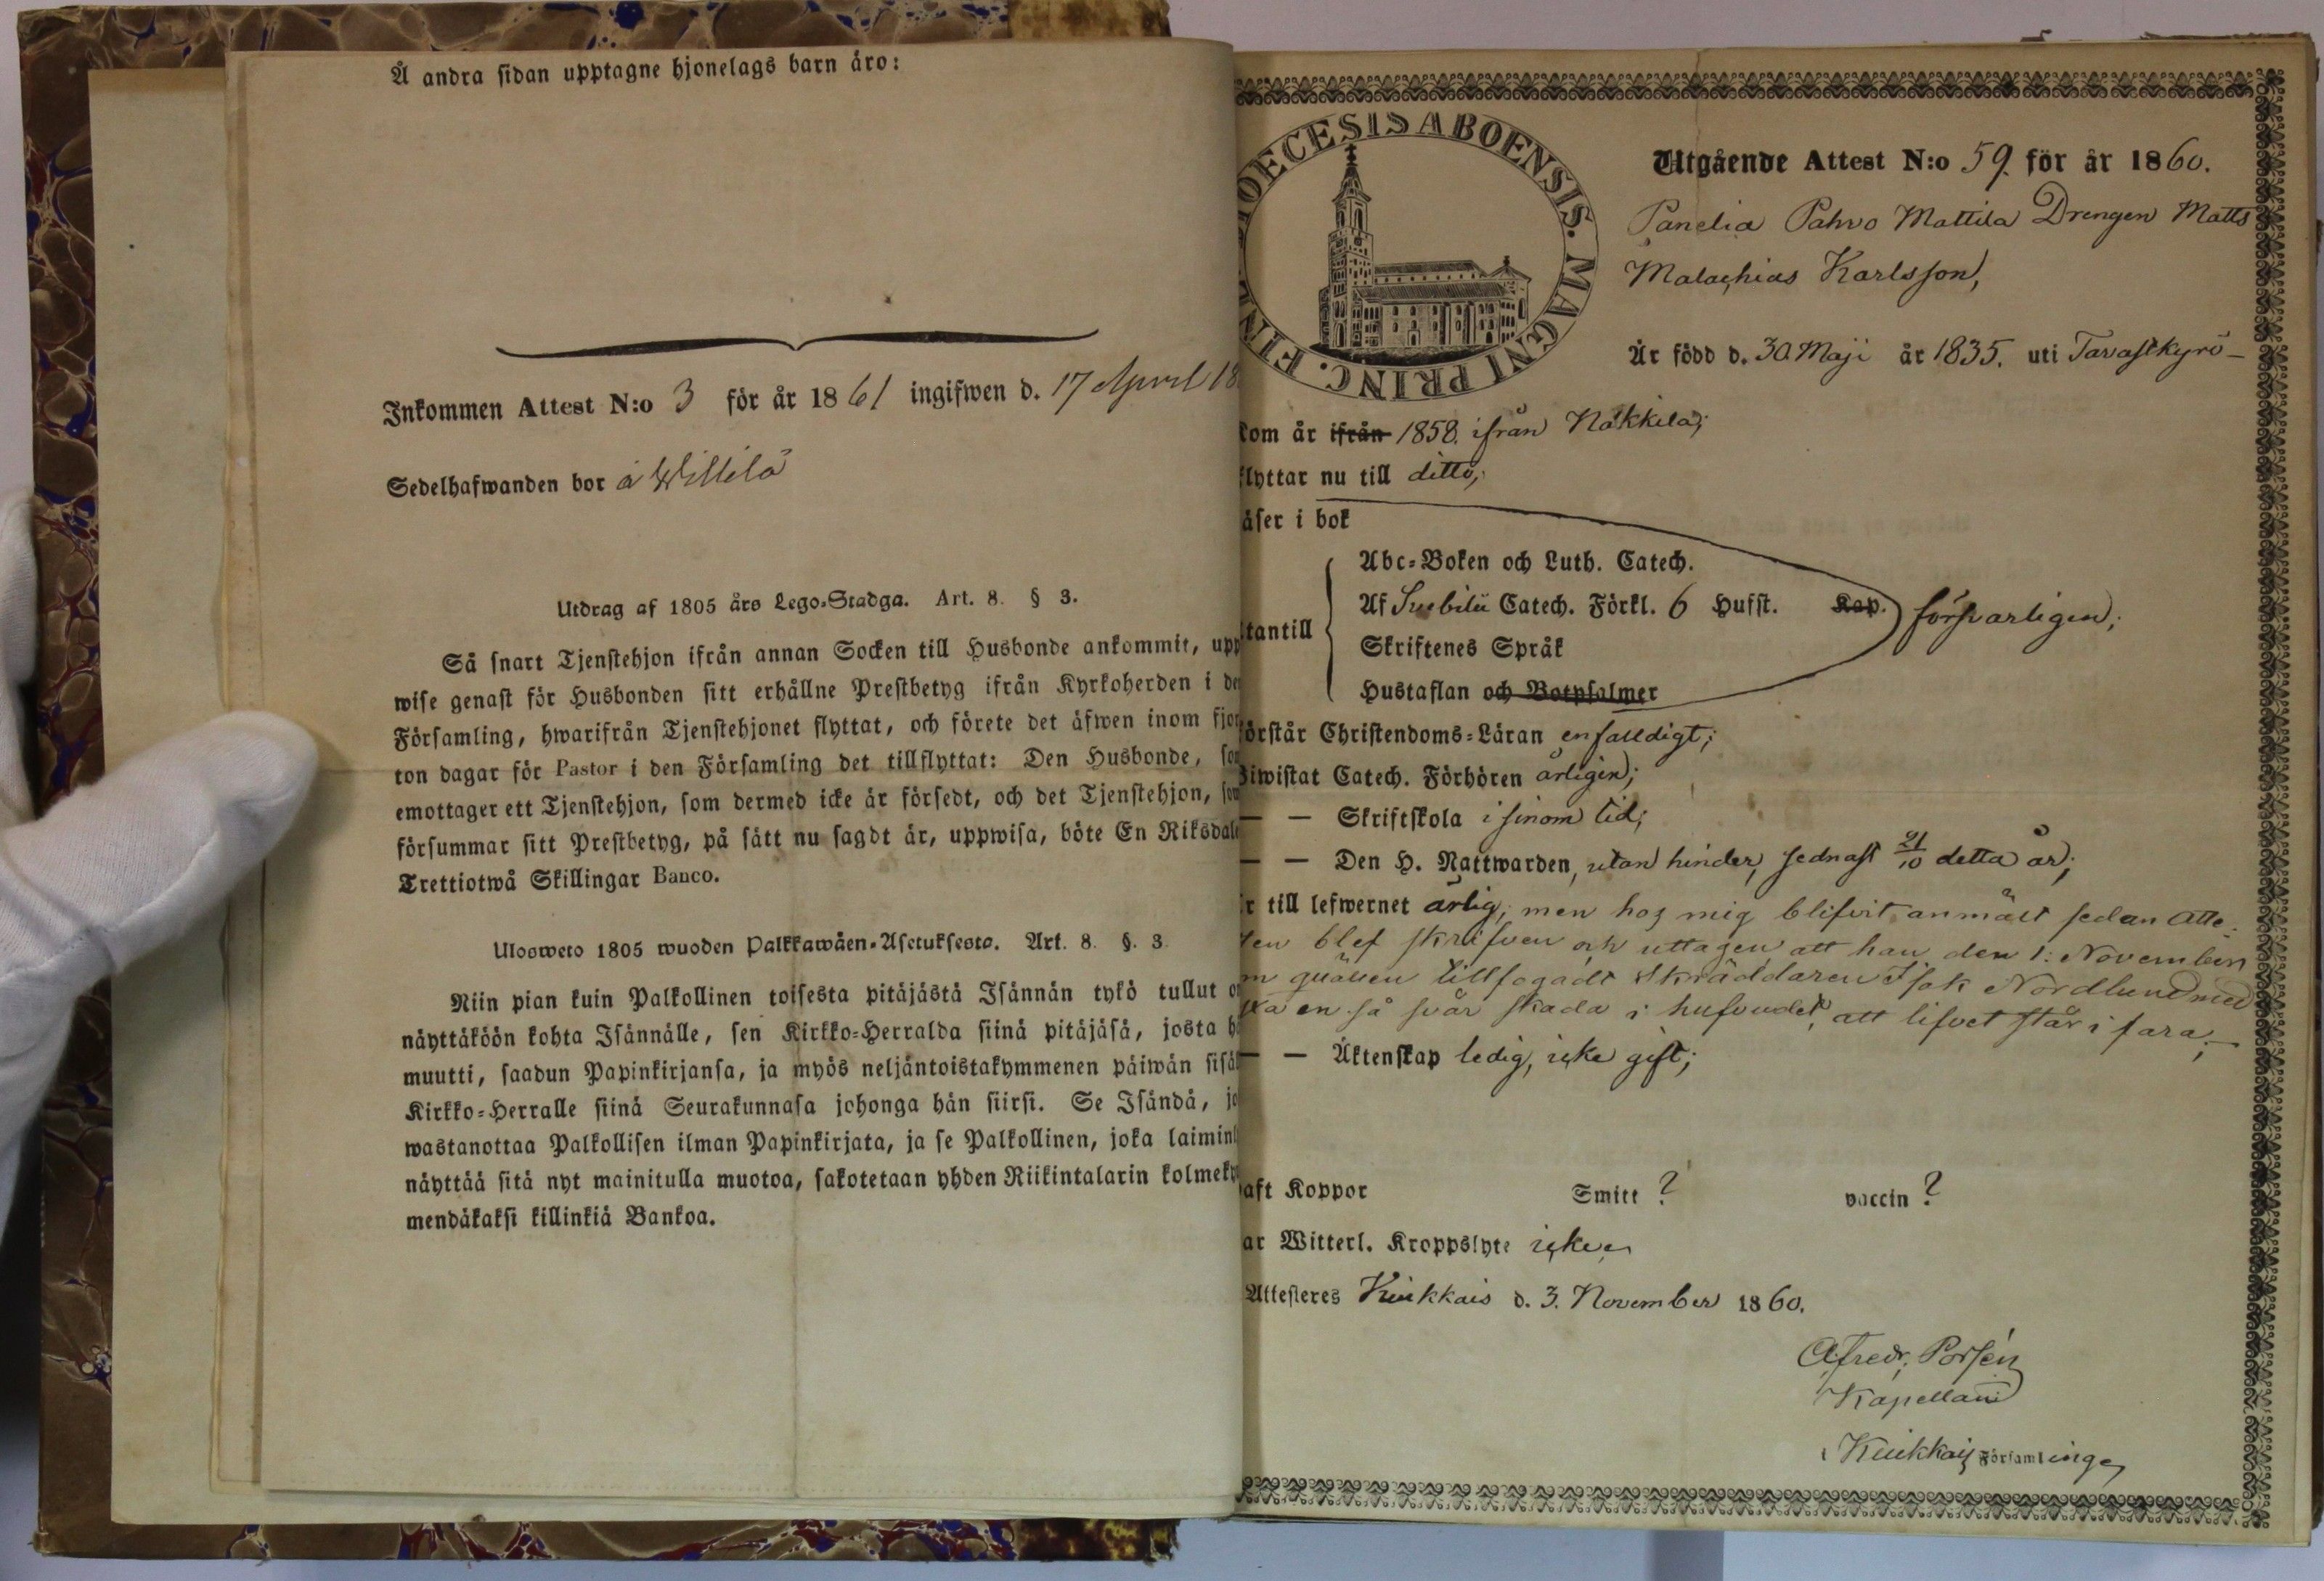 Å andra sidan upptagne hjonelags barn äro:
Inkommen Attest N:o 3 för år 1861 ingifwen d. 17 April 18
Sedelhafwanden bor å Willilä
Utdrag af 1805 års Lego-Stadga. Art. 8. § 3.
Så snart Tjenstehjon ifrån annan Socken till Husbonde ankommit, upp
wise genast för Husbonden sitt erhållne Prestbetyg ifrån Kyrkoherden i de
Församling, hwarifrån Tjenstehjonet flyttat, och förete det äfwen inom fjor
ton dagar för Pastor i den Församling det tillflyttat: Den Husbonde, som
emottager ett Tjenstehjon, som dermed icke är försedt, och det Tjenstehjon, som
försummar sitt Prestbetyg, på sätt nu sagdt är, uppwisa, böte En Riksdale
Trettiotwå Skillingar Banco.
Ulosweto 1805 wuoden Palkkawäen-Asetuksesta. Art. 8. §. 3
Niin pian kuin Palkollinen toisesta pitäjästä Isännän tykö tullut o
näyttäköön kohta Isännälle, sen Kirkko-Herralda siinä pitäjäsä, josta h
muutti, saadun Papinkirjansa, ja myös neljäntoistakymmenen päiwän sisäl
Kirkko-Herralle siinä Seurakunnasa johonga hän siirsi. Se Isändä, jo
wastanottaa Palkollisen ilman Papinkirjata, ja se Palkollinen, joka laiminl
näyttää sitä nyt mainitulla muotoa, sakotetaan yhden Riikintalarin kolmeky
mendäkaksi killinkiä Bankoa.
OECESIS ABOENSIS. MAGNI PRINC. FIN
Utgående Attest N:o 59. för år 1860.
Panelia Pahvo Mattila Drengen Matts
Malachias Karlsson,
Är född d. 30. Maji år 1835. uti Tavastkyrö
kom år ifrån 1858. ifrån Nakkila;
flyttar nu till ditto;
äser i bok
Abc-Boken och Luth. Catech.
Af Svebilii Catech. Förkl. 6 Hufst. Kap. försvarligen;
tantill
Skriftenes Språk
Hustaflan och Botpsalmer
örstår Christendoms-Läran enfaldigt;
Biwistat Catech. Förhören årligen;
— — Skriftskola i sinom tid;
— — Den H. Nattwarden, utan hinder, sednast 21/10 detta år;
r till lefwernet ärlig; men hos mig blifvit anmält sedan Atte-
ten blef skrifven och uttagen att han den 1: November
m qvällen tillfogadt Skräddaren Isak Nordlund med
ka en så svår skada i hufvudet, att lifvet står i fara;
— — Äktenskap ledig, icke gift;
aft Koppor Smitt ? vaccin ?
ar Witterl. Kroppslyte icke
Attesteres Kiukkais d. 3. November 1860.
Alfredr. Porsén
Kapellan
i Kiukkais Församlinge